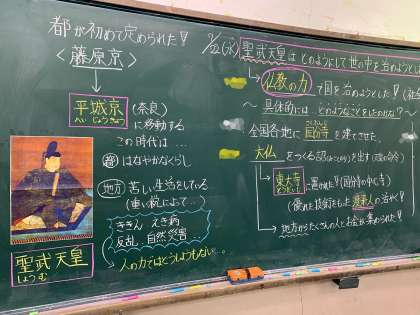 都が初めて定められた!!
〈藤原京〉
平城京(奈良)
へいじょうきょう
に移動する
この時代は…
都 はなやかなくらし
地方 苦しい生活をしている
(重い税によって…)
ききん えき病
反乱 自然災害
人の力ではどうしようもない…
聖武天皇
しょうむ
7/22(水) 聖武天皇はどのようにして世の中を治めようとし
仏教の力で国を治めようとした!!
〜具体的にはどのようなことをしたのかな?〜
全国各地に国分寺を建てさせた。
こくぶんじ
大仏をつくる詔(みことのり)を出す
東大寺に置かれた!!(国分寺の中心寺)
とうだいじ
(優れた技術をもつ渡来人の活やく)
地方からたくさんの人とお金が集められた!!